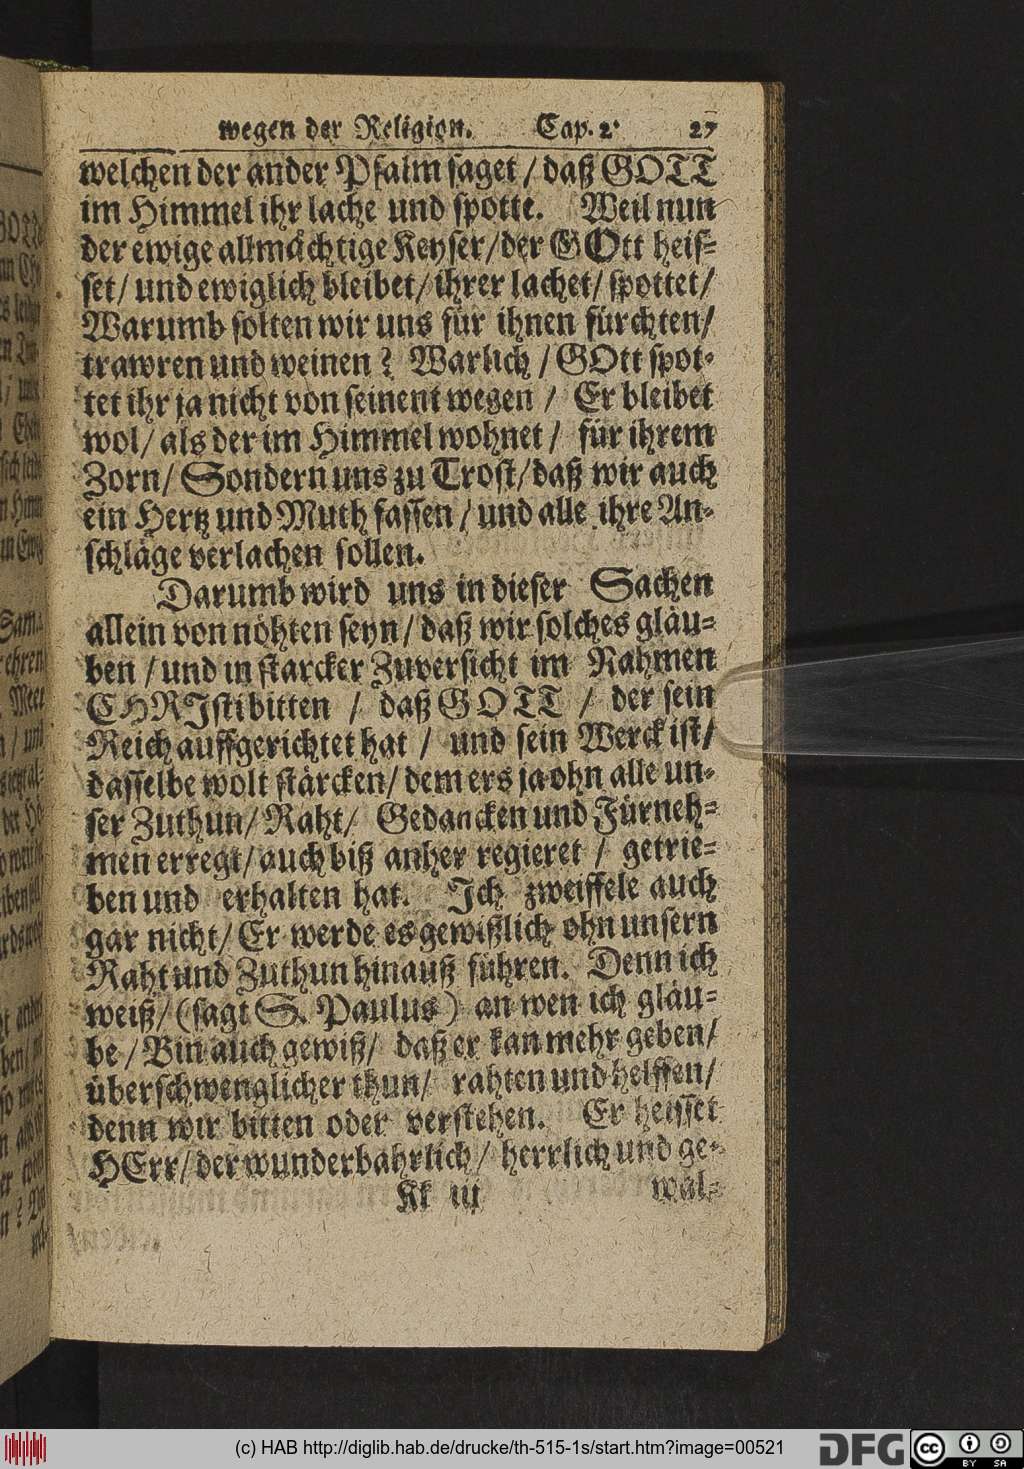 wegen der Religion. Cap. 2. 27
welchen der ander Psalm saget / daß GOTT
im Himmel ihr lache und spotte. Weil nun
der ewige allmächtige Keyser/der GOtt heis-
set/ und ewiglich bleibet/ ihrer lachet/ spottet/
Warumb solten wir uns für ihnen fürchten/
trawren und weinen? Warlich / GOtt spot-
tet ihr ja nicht von seinent wegen / Er bleibet
wol/ als der im Himmel wohnet / für ihrem
Zorn/ Sondern uns zu Trost/ daß wir auch
ein Hertz und Muth fassen / und alle ihre An-
schläge verlachen sollen.
Darumb wird uns in dieser Sachen
allein von nöhten seyn/ daß wir solches gläu-
ben / und in starcker Zuversicht im Nahmen
CHRJsti bitten / daß GOTT / der sein
Reich auffgerichtet hat / und sein Werck ist/
dasselbe wolt stärcken/ dem ers ja ohn alle un-
ser Zuthun/ Raht/ Gedancken und Fürneh-
men erregt/ auch biß anher regieret / getrie-
ben und erhalten hat. Jch zweiffele auch
gar nicht/ Er werde es gewißlich ohn unsern
Raht und Zuthun hinauß führen. Denn ich
weiß/ (sagt S. Paulus) an wen ich gläu-
be / Bin auch gewiß/ daß er kan mehr geben/
überschwenglicher thun/ rahten und helffen/
denn wir bitten oder verstehen. Er heisset
HErr/ der wunderbahrlich/ herrlich und ge-
Kk iij wal-
(c) HAB http://diglib.hab.de/drucke/th-515-1s/start.htm?image=00521
DFG cc BY SA